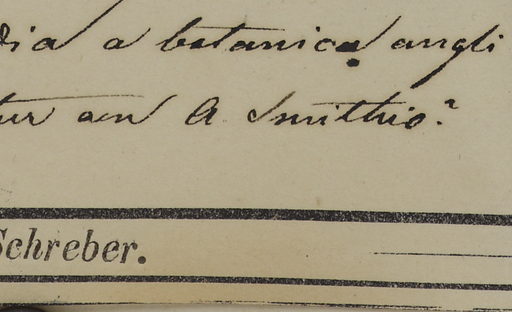 dia a botanica angli
tur an A Smithio?
Schreber.